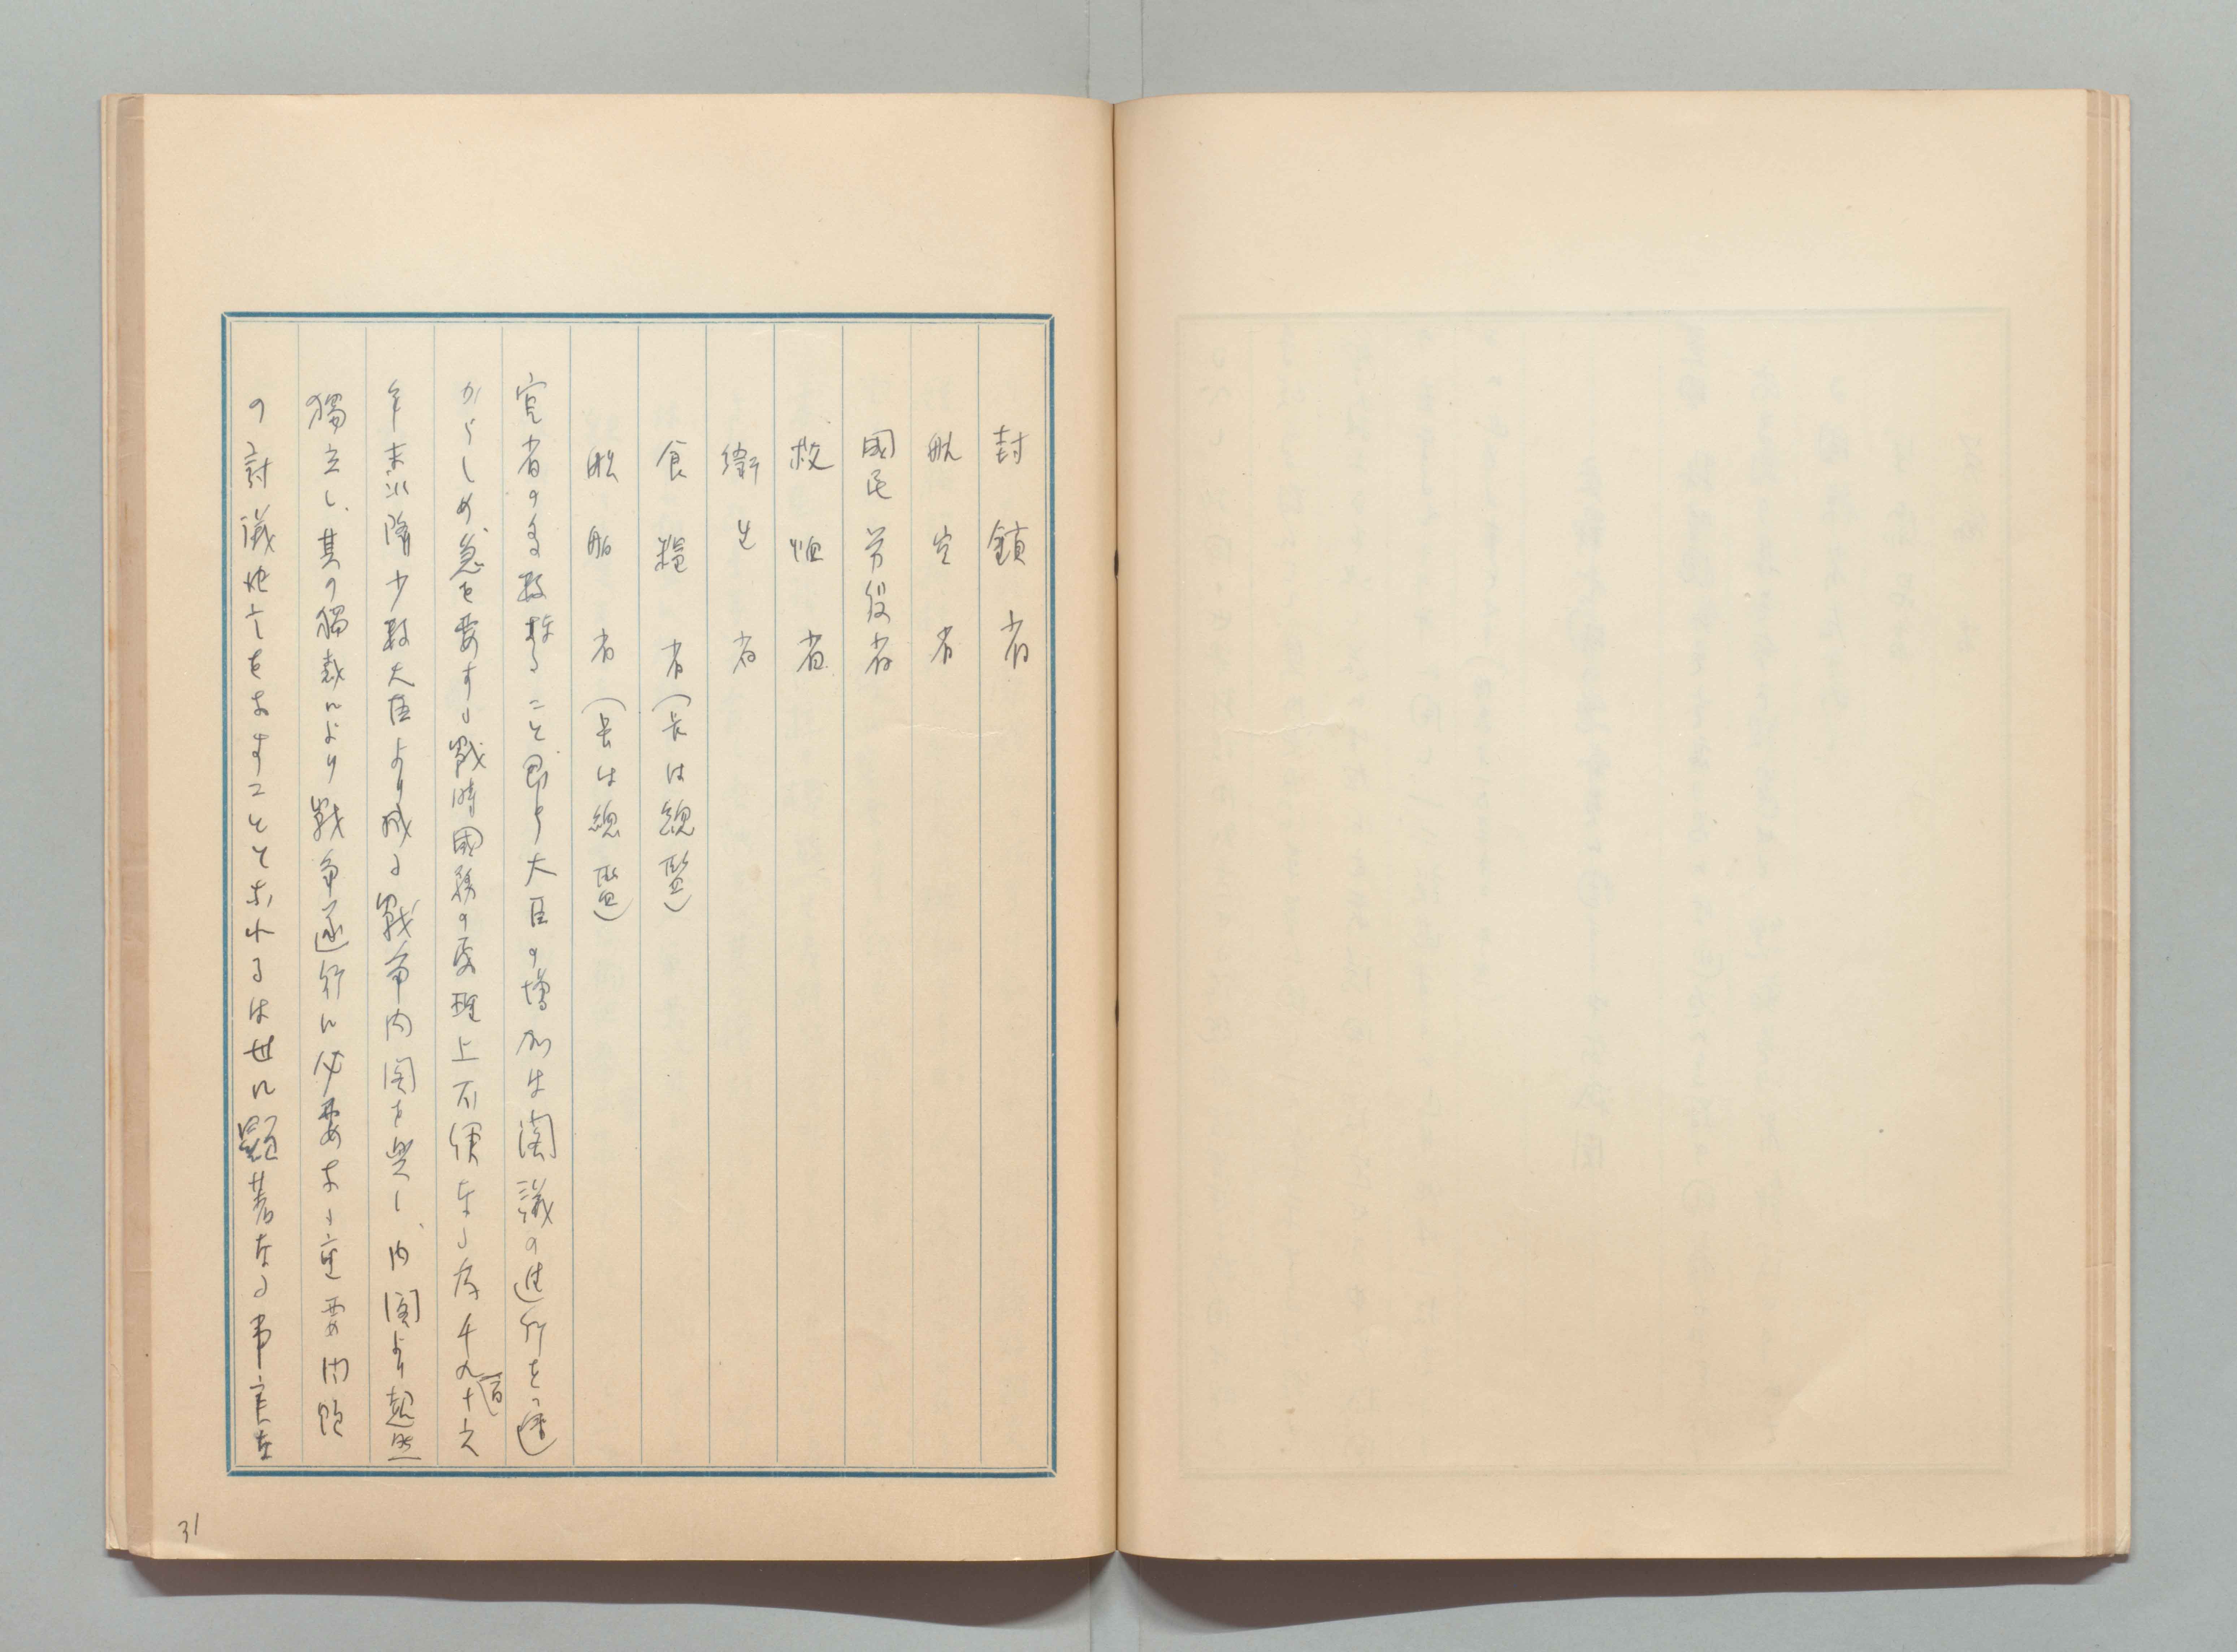 封鎖省
航空省
國民労役省
救恤省
衛生省
食糧省（長は總監）
船舶省（長は總監）
官省の多数なること即ち大臣の増加は閣議の進行を遅
からしめ、急を要する戰時國務の處理上不便なる為千九百十六
年末以降少数大臣より成る戰争内閣を興し、内閣より超然
獨立し、其の獨裁により戰争遂行に必要なる重要問題
の討議決定をなすこととなれるは世に顕著なる事実な
31